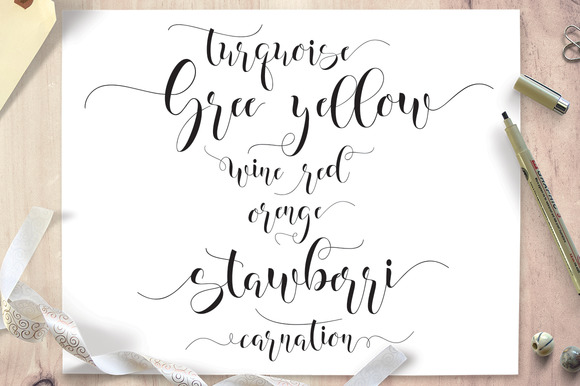 turquoise
Gree yellow
wine red
orenge
stawberri
carnation